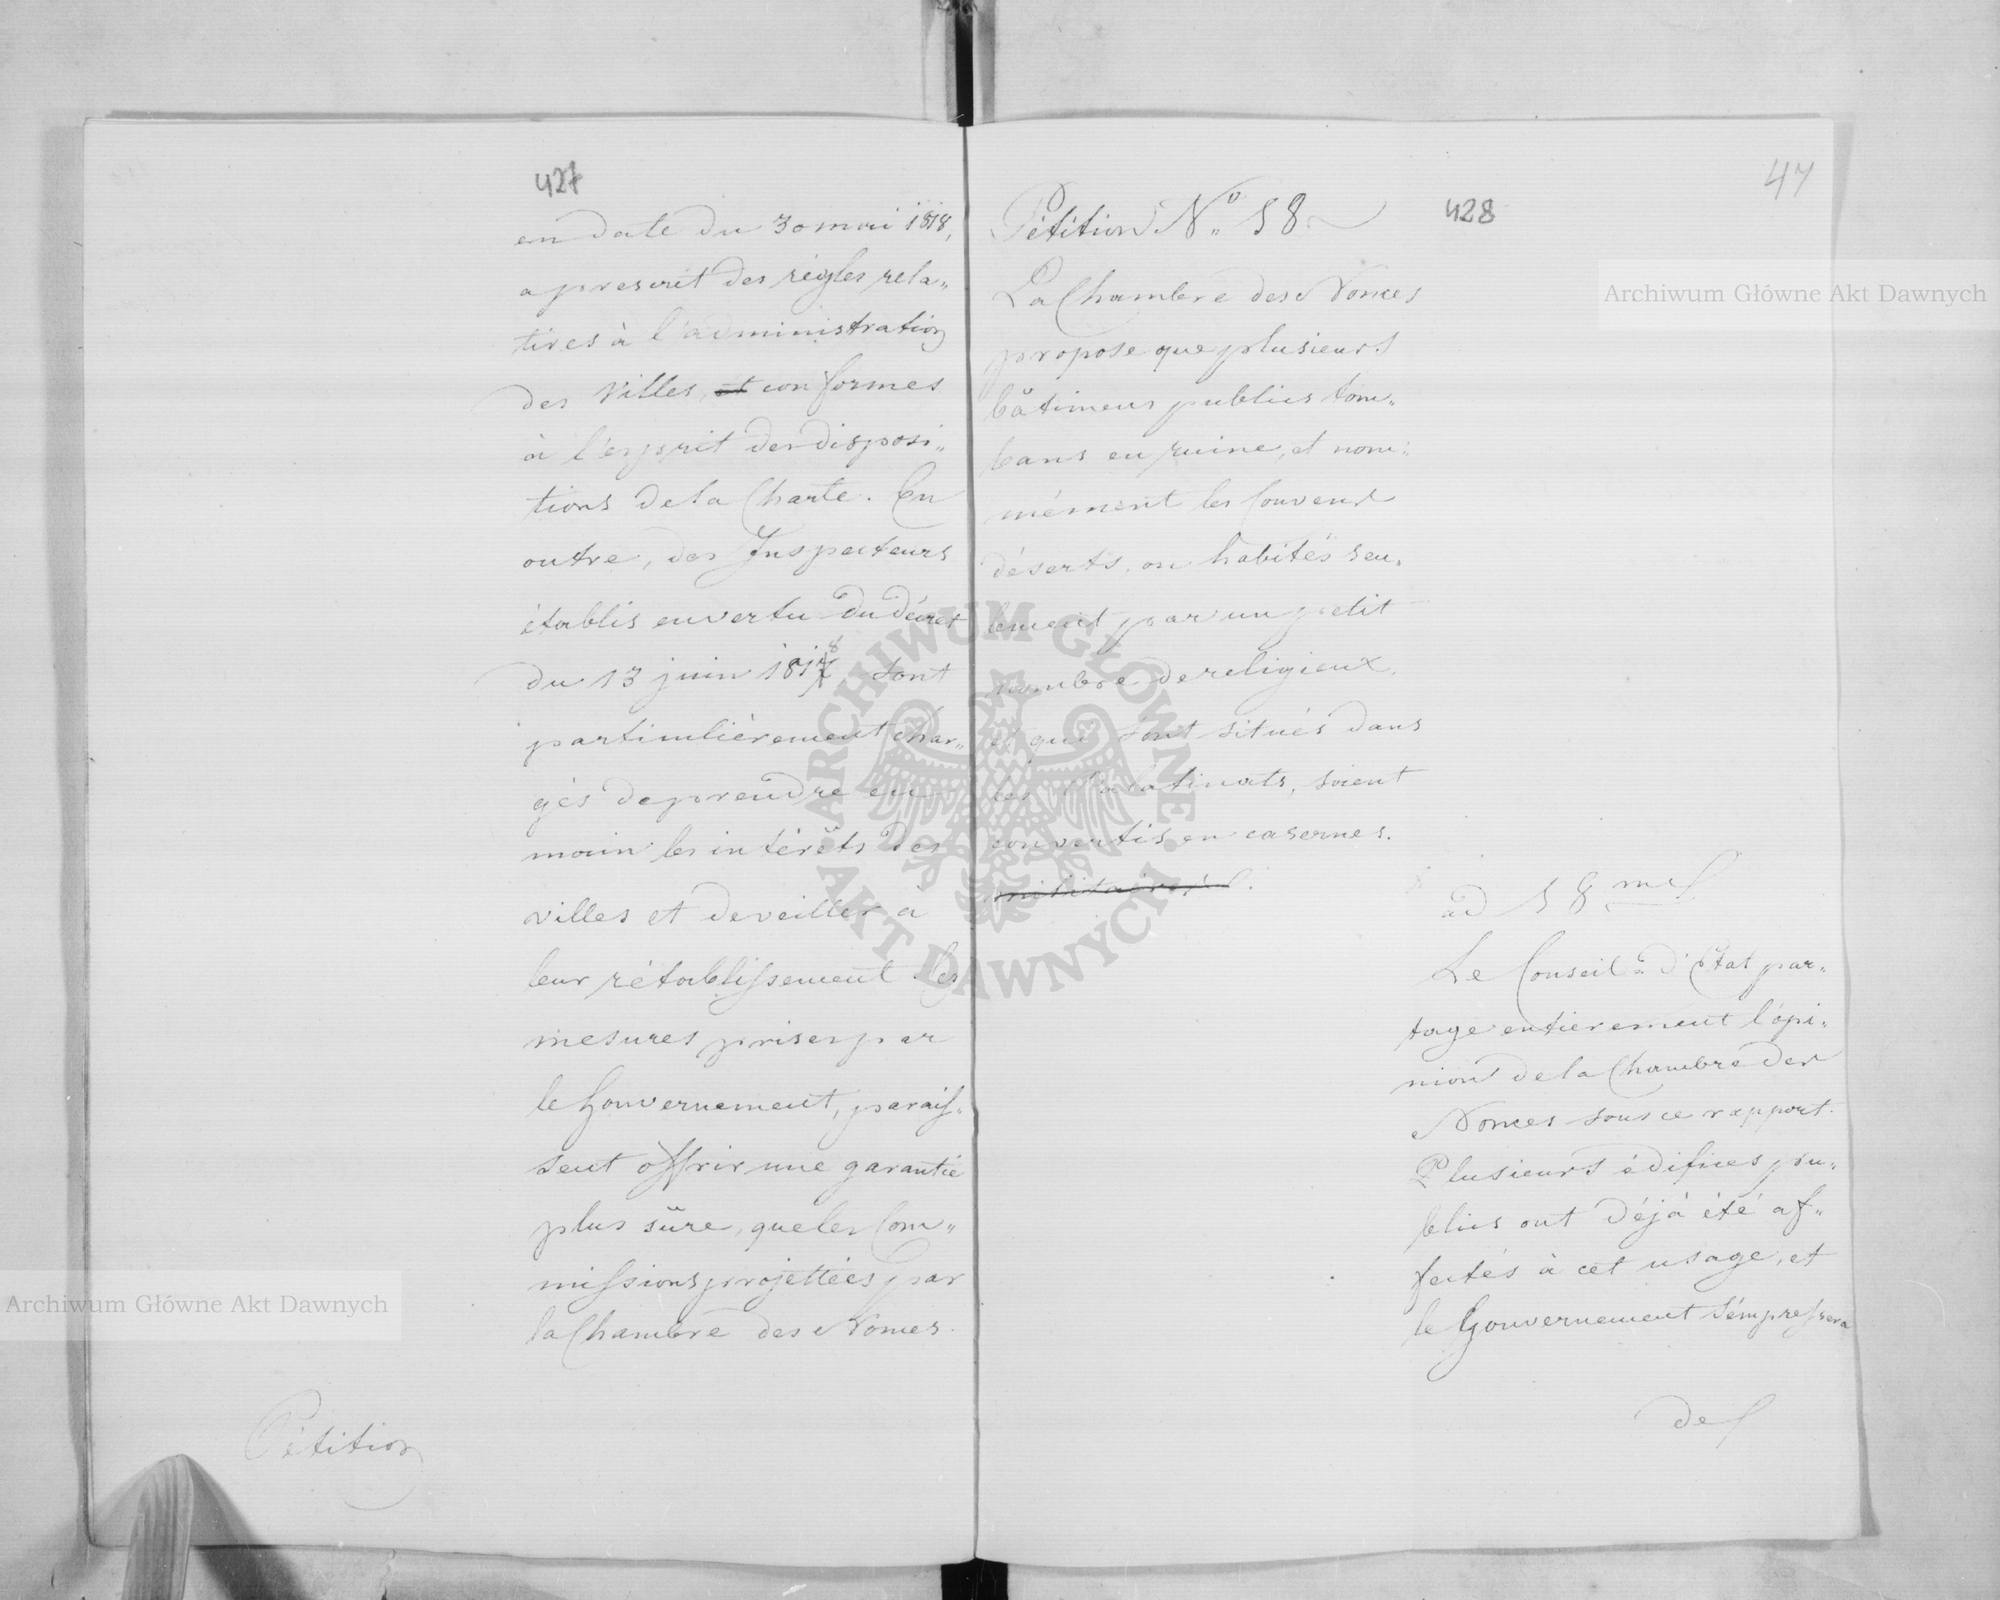 427
en date du 30 mai 1818,
a prescrit des règles rela„
tives à l'administration
des Villes, et conformes
à l'esprit des disposi„
tions de la Charte. En
outre, des Inspecteurs
établis en vertu du décret
du 13 juin 1818, sont
particulièrement char„
gés de prendre en
main les intérêts des
villes et de veiller à
leur rétablissement les
mesures prises par
le Gouvernement, parais„
sent offrir une garantie
plus sûre, que les Com„
missions projettées par
la Chambre des Nonces.
Pétition
47
428
Pétition No 58
La Chambre des Nonces
propose que plusieurs
bâtimens publics tom„
bans en ruine, et nom„
mément les Couvens
déserts, ou habités seu„
lement par un petit
nombre de religieux,
et qui sont situés dans
les Palatinats, soient
convertis en casernes.
militaires.
ad 58 mes
Le Conseil d'État par„
tage entierement l'opi„
nion de la Chambre des
Nonces sous ce rapport.
Plusieurs édifices pu„
blics ont déjà été af„
fectés à cet usage, et
le Gouvernement s'empressera
de
Archiwum Główne Akt Dawnych
Archiwum Główne Akt Dawnych
ARCHIWUM GŁÓWNE AKT DAWNYCH